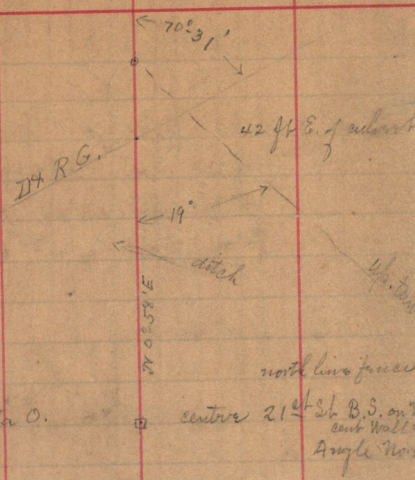 70°-31'
42 ft E. of culvert
D & R G.
19°
ditch
N 0°-58' E
north line fence
O.
centre 21st St. B.S. on
cent Wall
Angle